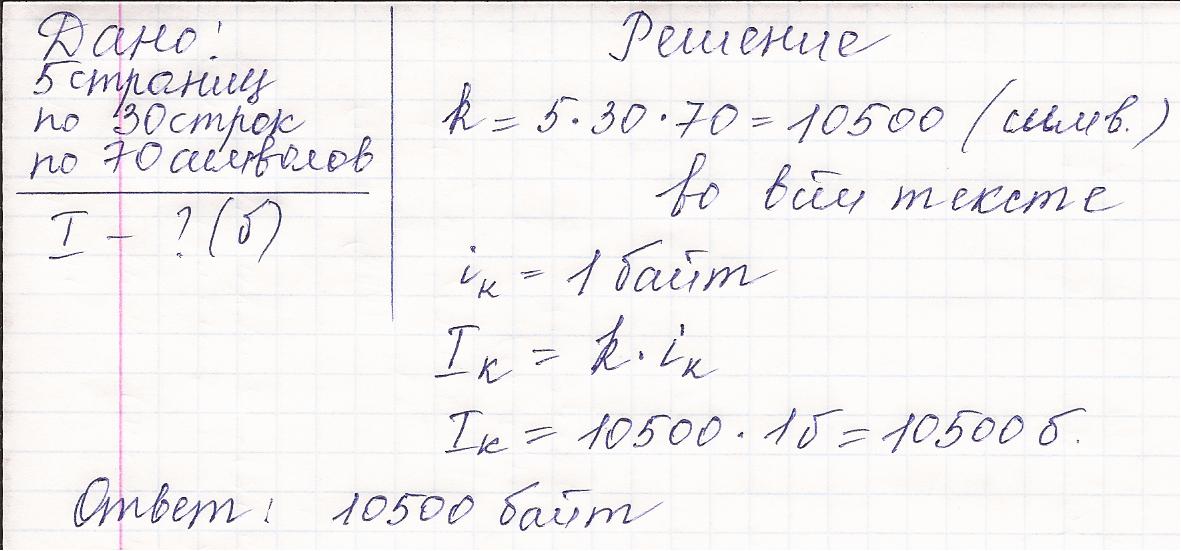 Дано:
5 страниц
по 30 строк
по 70 символов
I - ? (б)
Решение
k = 5 · 30 · 70 = 10500 (симв.)
во всём тексте
iк = 1 байт
Iк = k · iк
Iк = 10500 · 1б = 10500 б.
Ответ: 10500 байт